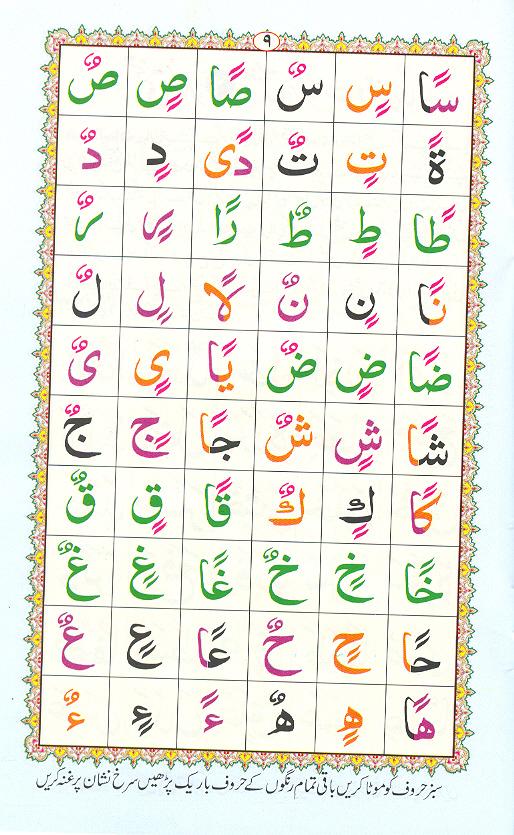 ۹
سًا سٍ سٌ صًا صٍ صٌ
ةً تٍ تٌ دًى دٍ دٌ
طًا طٍ طٌ رًا رٍ رٌ
نًا نٍ نٌ لًا لٍ لٌ
ضًا ضٍ ضٌ يًا یٍ یٌ
شًا شٍ شٌ جًا جٍ جٌ
كًا كٍ كٌ قًا قٍ قٌ
خًا خٍ خٌ غًا غٍ غٌ
حًا حٍ حٌ عًا عٍ عٌ
هًا هٍ هٌ ءً ءٍ ءٌ
سبز حروف کو موٹا کریں باقی تمام رنگوں کے حروف باریک پڑھیں سرخ نشان پر غنہ کریں